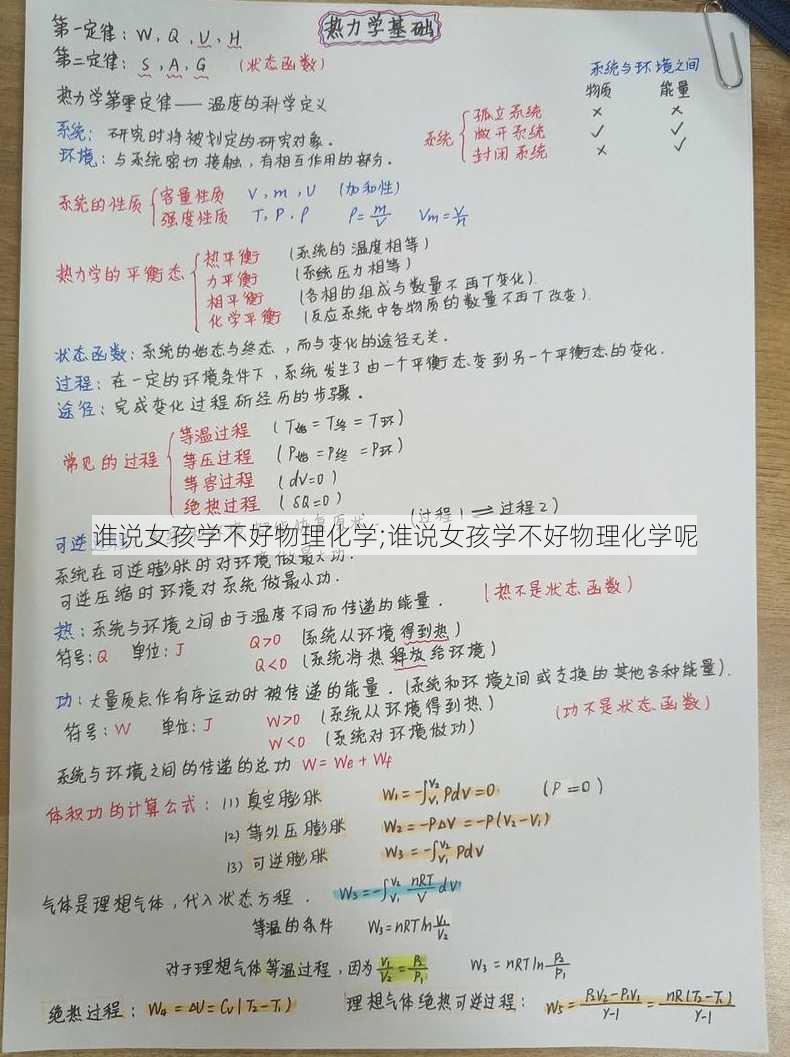 热力学基础
第一定律：W，Q，U，H
第二定律：S，A，G （状态函数）
热力学第零定律——温度的科学定义
系统：研究时将被划定的研究对象．
环境：与系统密切接触，有相互作用的部分．
系统与环境之间
物质 能量
系统 { 孤立系统 × ×
敞开系统 ✓ ✓
封闭系统 × ✓
系统的性质 { 容量性质 V，m，U （加和性）
强度性质 T，P，ρ ρ=m/V Vm=V/n
热力学的平衡态 { 热平衡 （系统的温度相等）
力平衡 （系统压力相等）
相平衡 （各相的组成与数量不再丁变化）．
化学平衡 （反应系统中各物质的数量不再丁改变）．
状态函数：系统的始态与终态，而与变化的途径无关．
过程：在一定的环境条件下，系统发生了由一个平衡态变到另一个平衡态的变化．
途径：完成变化过程所经历的步骤．
常见的过程 { 等温过程 （T始=T终=T环）
等压过程 （P始=P终=P环）
等容过程 （dV=0）
绝热过程 （δQ=0）
可逆 （过程1⇌过程2）
谁说女孩学不好物理化学;谁说女孩学不好物理化学呢
系统在可逆膨胀时对环境做最大功．
可逆压缩时环境对系统做最小功．
热：系统与环境之间由于温度不同而传递的能量． （热不是状态函数）
符号：Q 单位：J Q>0 （系统从环境得到热）
Q<0 （系统将热释放给环境）
功：大量质点作有序运动时被传递的能量．（系统和环境之间或交换的其他各种能量）．
符号：W 单位：J W>0 （系统从环境得到热） （功不是状态函数）
W<0 （系统对环境做功）
系统与环境之间的传递的总功 W=We+Wf
体积功的计算公式：(1) 真空膨胀 W₁=-∫V₁V₂ Pdv=0 （P=0）
(2) 等外压膨胀 W₂=-PΔV=-P(V₂-V₁)
(3) 可逆膨胀 W₃=-∫V₁V₂ Pdv
气体是理想气体，代入状态方程． W₃=-∫V₁V₂ nRT/V dv
等温的条件 W₃=nRTln V₁/V₂
对于理想气体等温过程，因为 V₁/V₂=P₂/P₁ W₃=nRTln P₂/P₁
绝热过程：W₄=ΔU=Cv(T₂-T₁) 理想气体绝热可逆过程：W₅=P₂V₂-P₁V₁/γ-1=nR(T₂-T₁)/γ-1